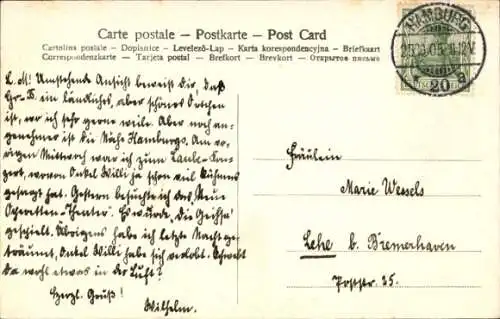 Carte postale – Postkarte – Post Card
Cartolina postale – Dopisnice – Levelező-Lap – Karta korespondencyjna – Briefkaart
Correspondenzkarte – Tarjeta postal – Brefkort – Brevkort – Открытое письмо
HAMBURG
20
L. M! Umstehende Ansicht beweist dir, daß
Gr.-B. ein ländliches, aber schönes Örtchen
ist, wo ich sehr gerne weile. Aber noch an-
genehmer ist die Nähe Hamburgs. Am vo-
rigen Mittwoch war ich zum Lamke-Kon-
zert, wovon Onkel Willi ja schon viel Rühmens
gesagt hat. Gestern besuchte ich das "Neue
Operetten-Theater". Es wurde "Die Geisha"
gespielt. Übrigens habe ich letzte Nacht ge-
träumt, Onkel Willi habe sich verlobt. Schwebt
da wohl etwas in der Luft?
Herzl. Gruß!
Wilhelm.
Fräulein
Marie Wessels
Lehe b. Bremerhaven
Poststr. 35.